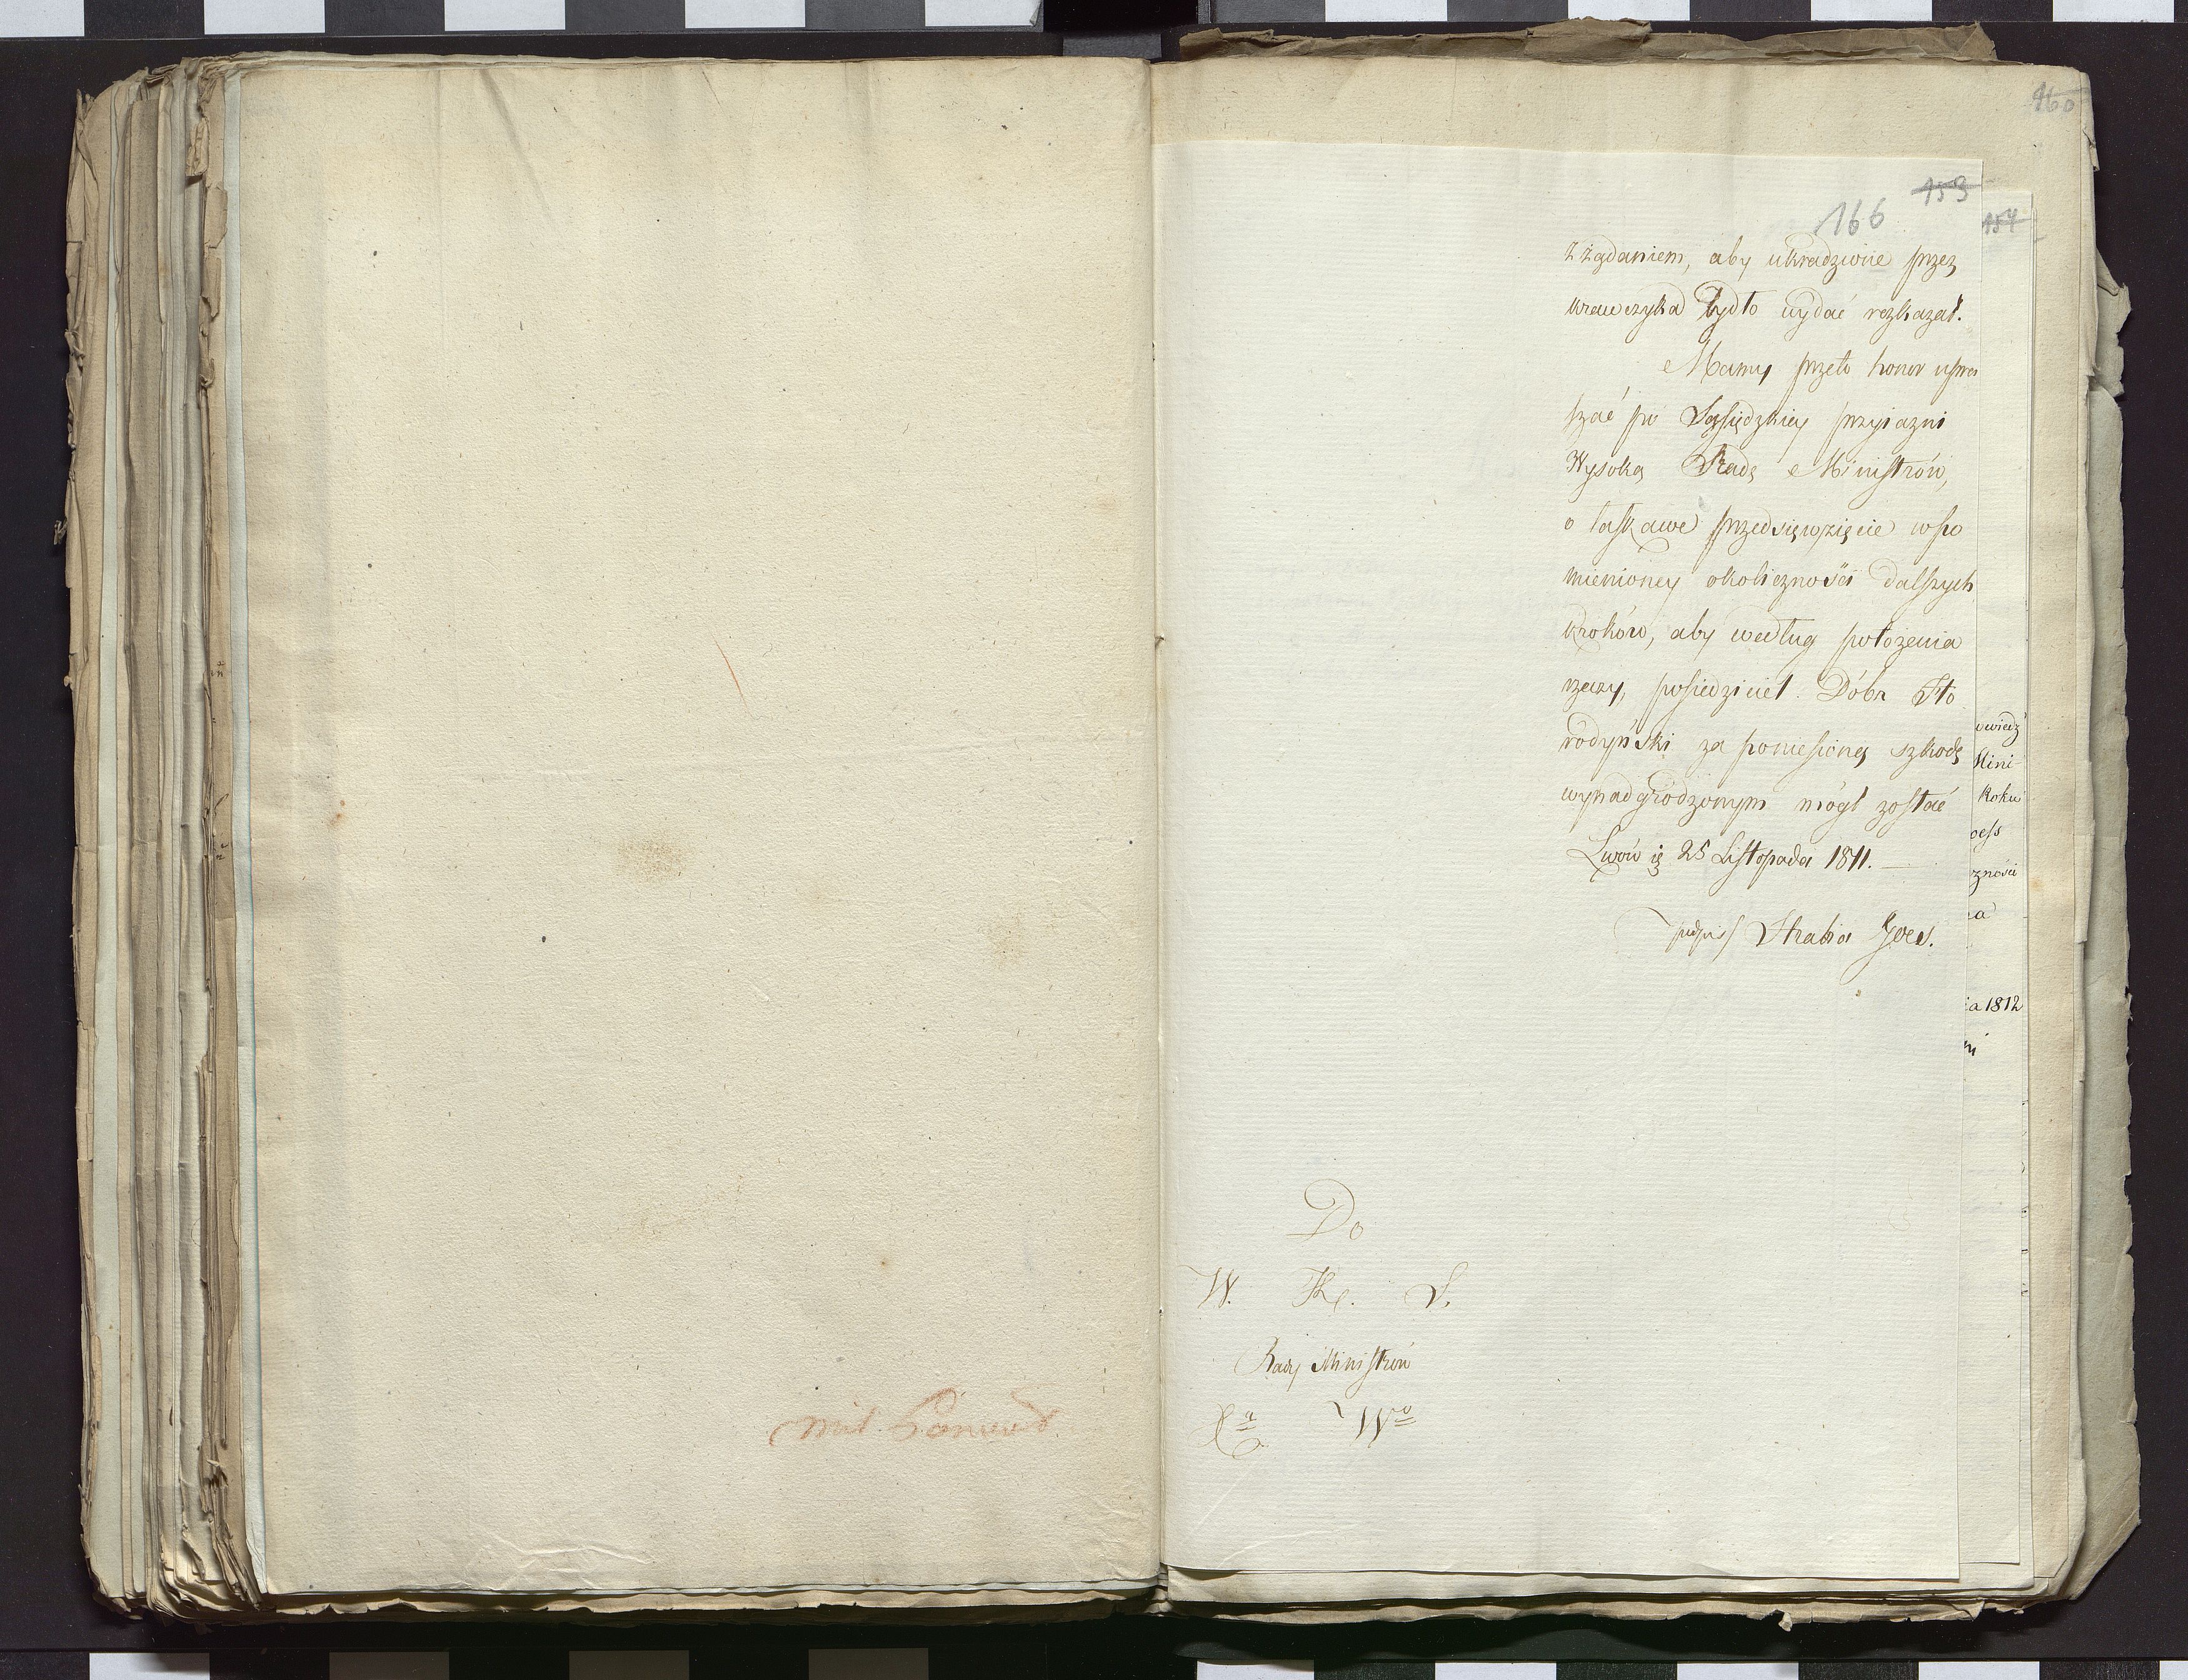 160
153
166
154
z żądaniem, aby ukradzione przez
krawczyka bydło wydać rozkazał.
Mamy przeto honor upra
szać po Sąsiedzkiey przyiazni
Wysoką Radę Ministrów,
o łaskawe przedsięwzięcie wspo
mnieniony okoliczności dalszych
kroków, aby według położenia
rzeczy, posiedziciel Dóbr Sto
rodyński za poniesioną szkodę
wynadgrodzonym mógł zostać
Lwów 25 Listopada 1811.
podpis/ Hrabia Goes.
Do
W. X. S.
Rady Ministrów
Xa Wo
owiedź
Mini-
Roku
oess
zności
ra
ia 1812